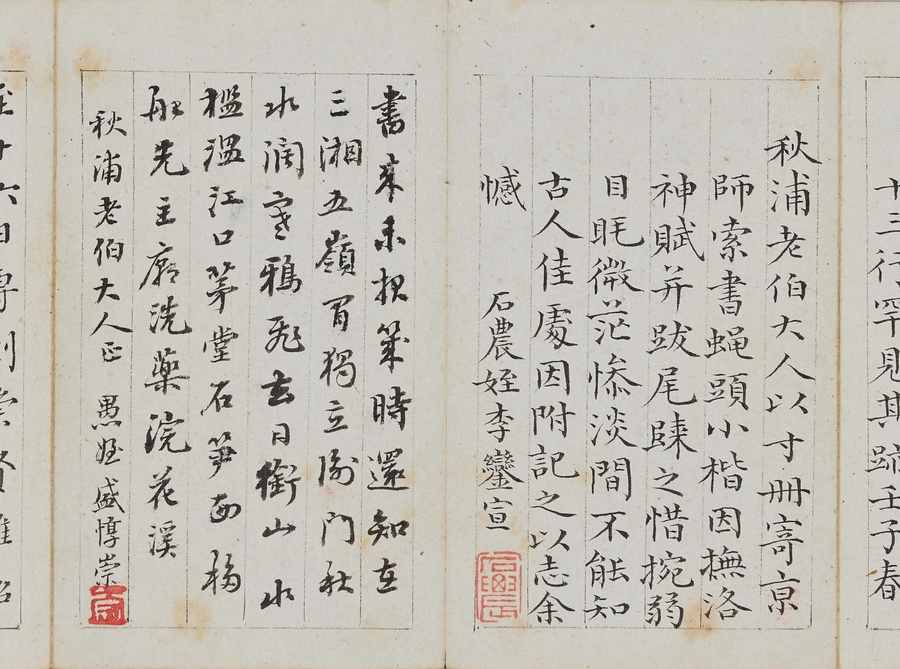 十三行罕見其跡壬子春
秋浦老伯大人以寸冊寄京
師索書蝇頭小楷因撫洛
神賦并跋尾之惜捥弱
目眊微茫慘淡間不能知
古人佳處因附記之以志余
憾
石農姪李鑾宣
石農
書來未报幾時還知在
三湘五嶺間獨立衡門秋
水闊寒鴉飛去日銜山 水
檻温江口茅堂石笋西移
船先主廟洗藥浣花溪
秋浦老伯大人正 愚姪盛惇崇